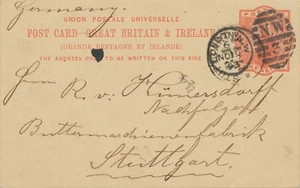 Germany.
UNION POSTALE UNIVERSELLE
POST CARD-GREAT BRITAIN & IRELAND
(GRANDE BRETAGNE ET IRLANDE)
THE ADDRESS ONLY TO BE WRITTEN ON THIS SIDE.
Herren
R. v. Hünersdorff
Nachfolger
Buttermaschinenfabrik
Stuttgart.